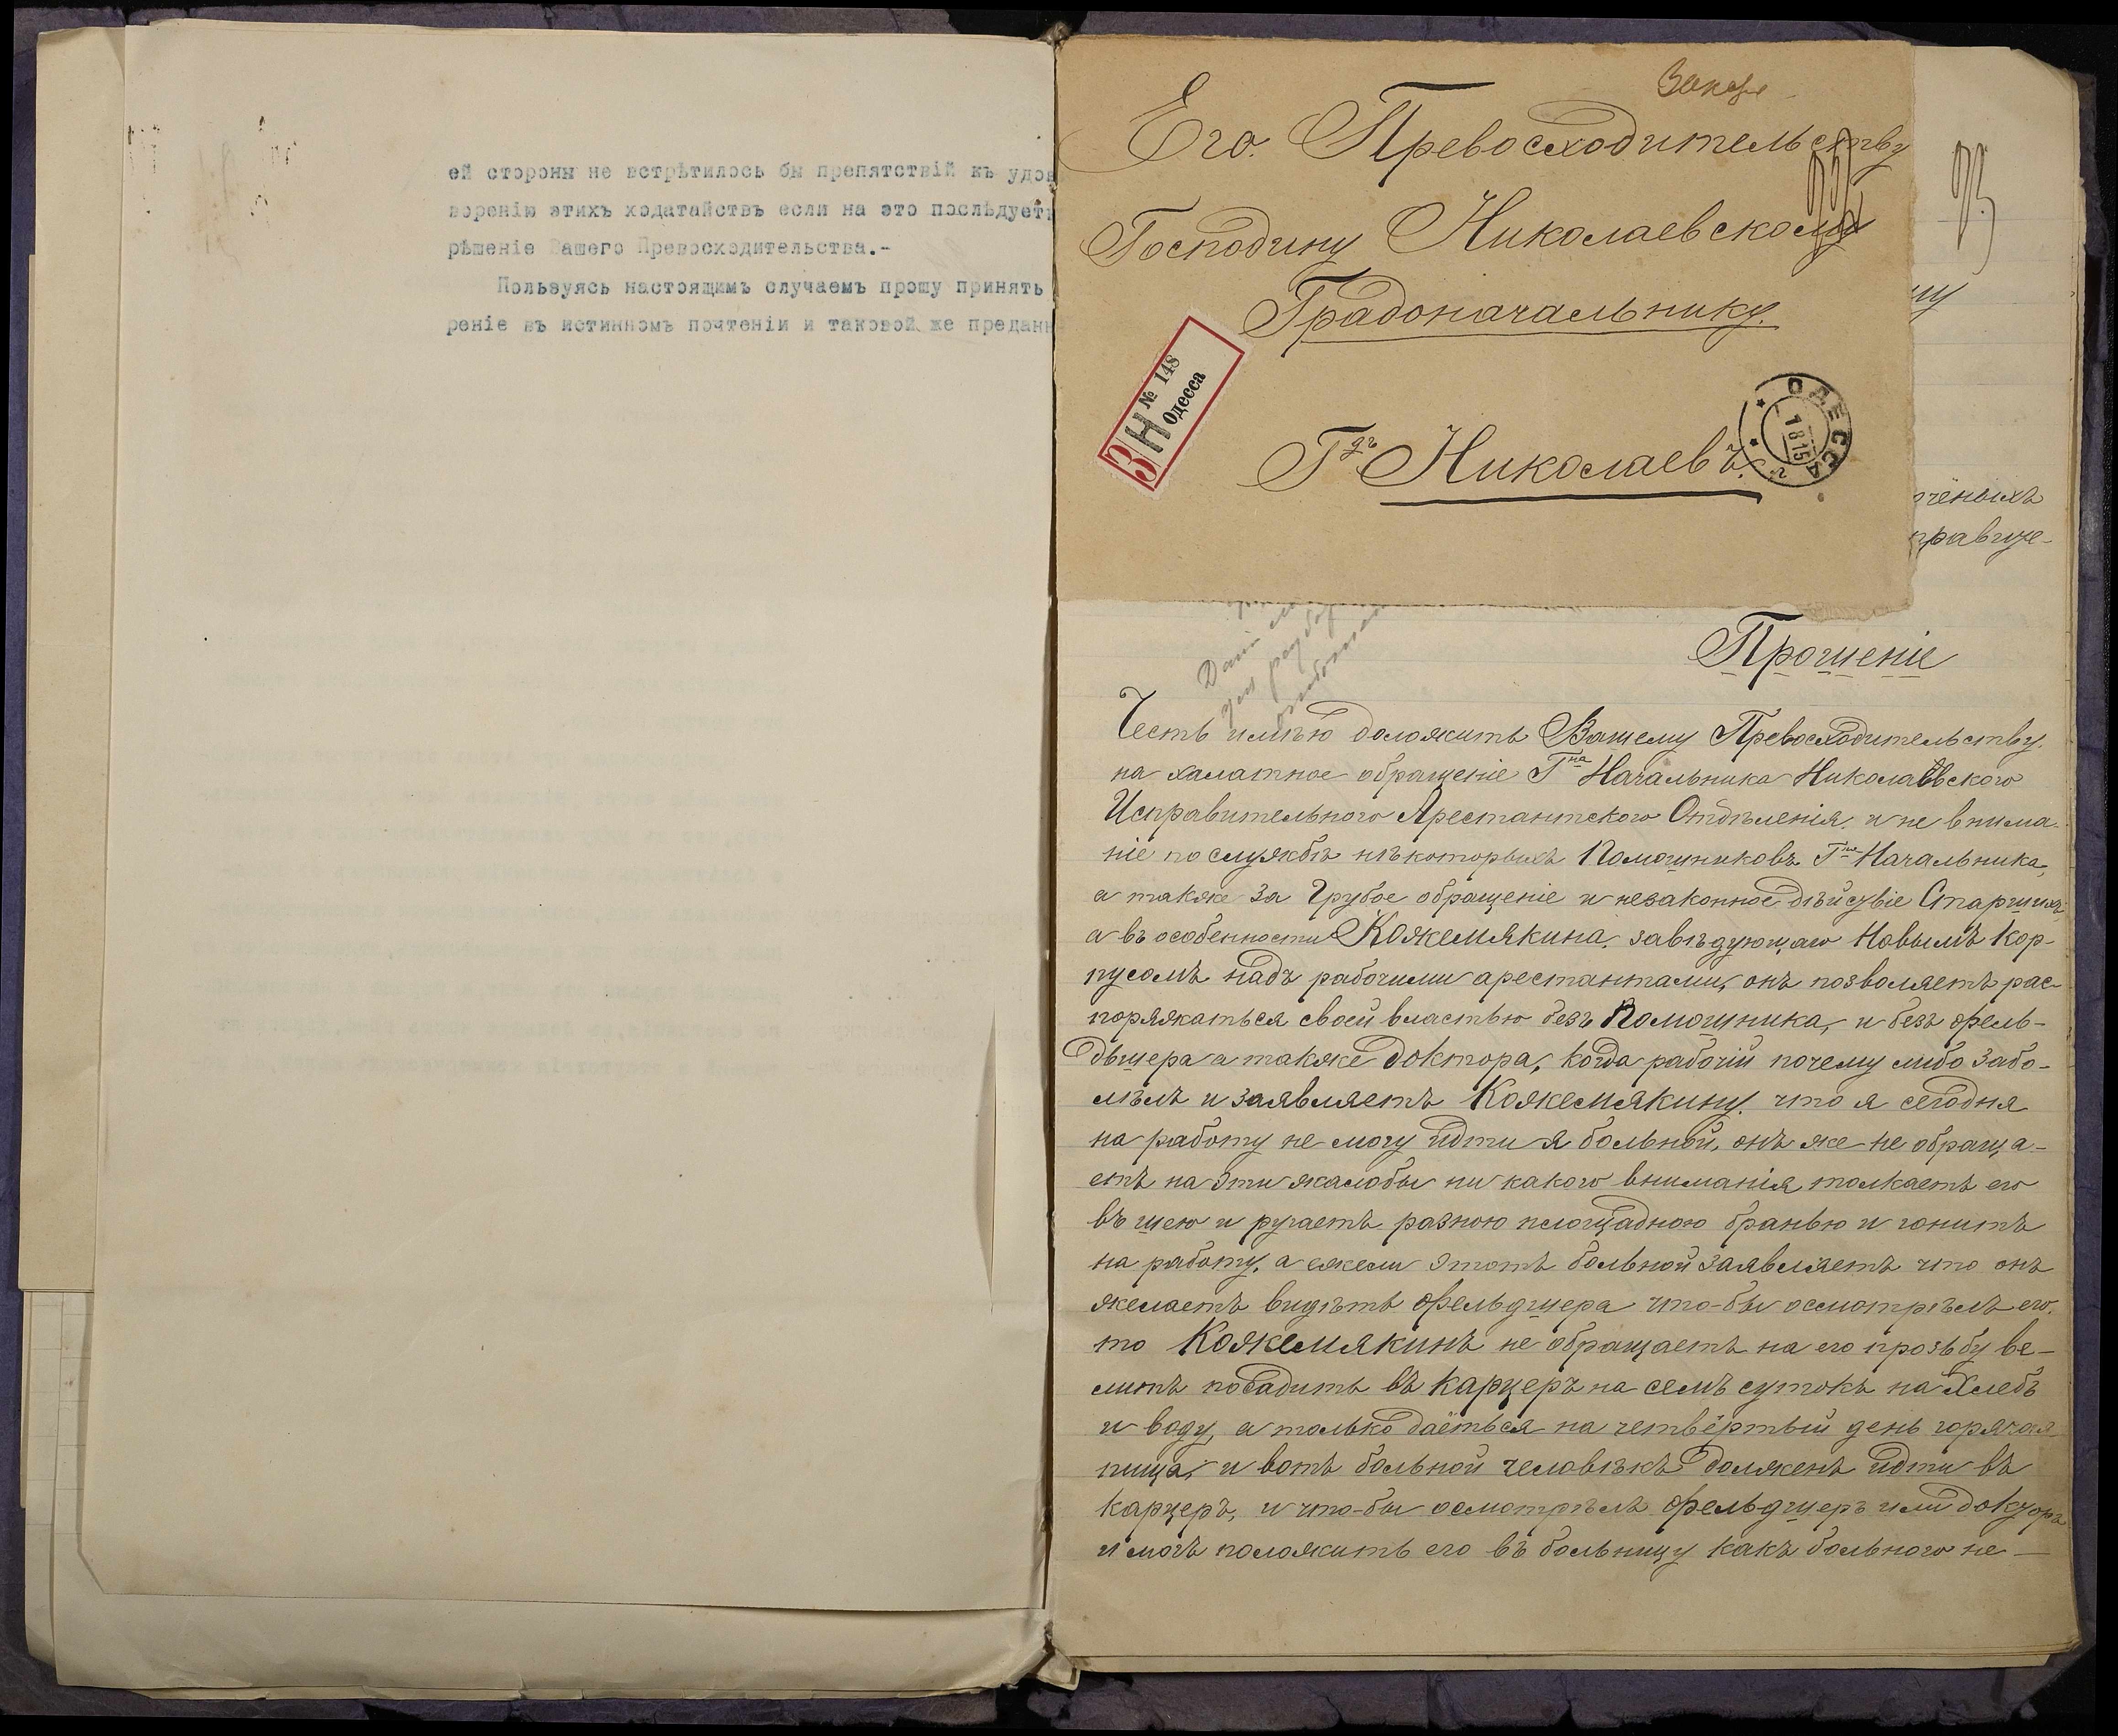 ей стороны не встрѣтилось бы препятствій къ удов
воренію этихъ ходатайствъ если на это послѣдуетъ
рѣшеніе Вашего Превосходительства.-
Пользуясь настоящимъ случаемъ прошу принять
реніе въ истинномъ почтеніи и таковой же преданн
Его Превосходительству
Господину Николаевскому
Градоначальнику.
З Н № 148
Одесса
Гдъ Николаевъ.
ОДЕССА
1 8 15
93
му
чёныхъ
правше-
Прошеніе
Честь имѣю доложить Вашему Превосходительству.
на халатное обращеніе Гна Начальника Николаевского
Исправительного Арестантского Отдѣленія. и не внима-
ніе по службѣ нѣкоторыхъ Помошниковъ Гна Начальника,
а также за Грубое обращеніе и незаконное дѣйствіе Старшихъ
а въ особенности Кожемякина. завѣдующаго Новымъ Кор-
пусомъ надъ рабочими арестантами, онъ позволяетъ рас-
поряжаться своей властью безъ Помошника, и безъ фель-
дшера а также доктора, когда рабочій почему либо забо-
лѣлъ и заявляетъ Кожемякину. что я сегодня
на работу не могу идти я больной, онъ же не обраща-
етъ на эти жалобы ни какого вниманія толкаетъ его
въ шею и ругаетъ разною площадною бранью и гонитъ
на работу, а ежели этотъ больной заявляетъ что онъ
желаетъ видѣть фельдшера что-бы осмотрѣлъ его.
то Кожемякинъ не обращаетъ на его прозьбу ве-
литъ посадить въ карцеръ на семъ сутокъ на Хлебъ
и воду, а только даёться на четвёртый день горячая
пища, и вотъ больной человѣкъ долженъ идти въ
карцеръ, и что-бы осмотрѣлъ фельдшеръ или докторъ
и могъ положить его въ больницу какъ больного не —